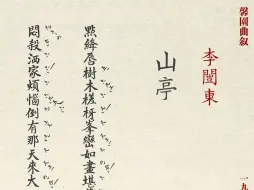 馨園曲叙
一九
李閩東
山亭
點絳唇樹木槎枒峯巒如畫堪
悶殺洒家煩惱倒有那天來大